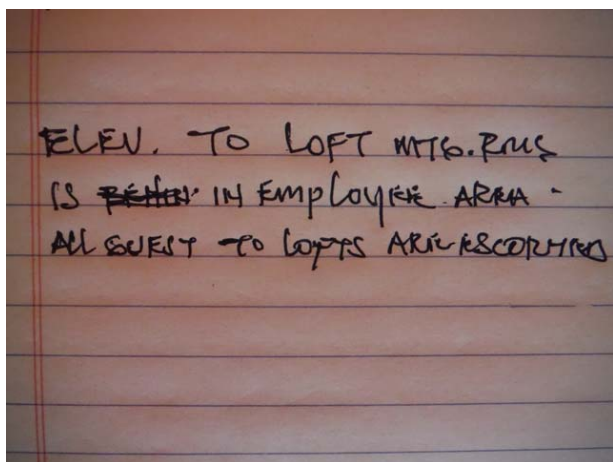 ELEV. TO LOFT MTG. RMS
IS IN EMPLOYEE AREA -
ALL GUEST TO LOFTS ARE ESCORTED